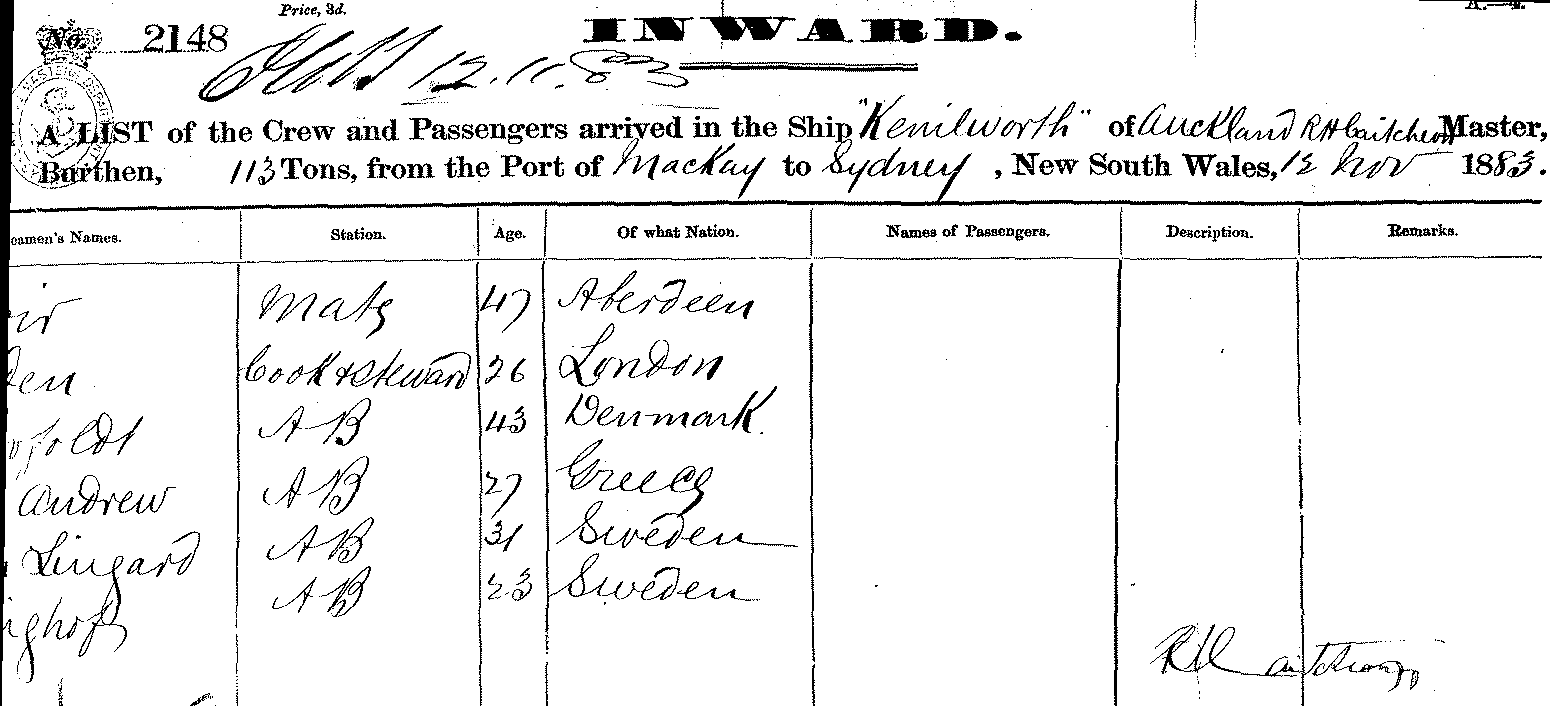 Price, 3d.
No. 2148
INWARD.
12.11.83
A LIST of the Crew and Passengers arrived in the Ship "Kenilworth" of Auckland R H Caitcheon Master,
Burthen, 113 Tons, from the Port of Mackay to Sydney, New South Wales, 12 Nov 1883.
eamen's Names. Station. Age. Of what Nation. Names of Passengers. Description. Remarks.
Mate 47 Aberdeen
den Cook & Steward 26 London
foldt A B 43 Denmark
Andrew A B 27 Greece
Lingard A B 31 Sweden
A B 23 Sweden
R H Caitcheon